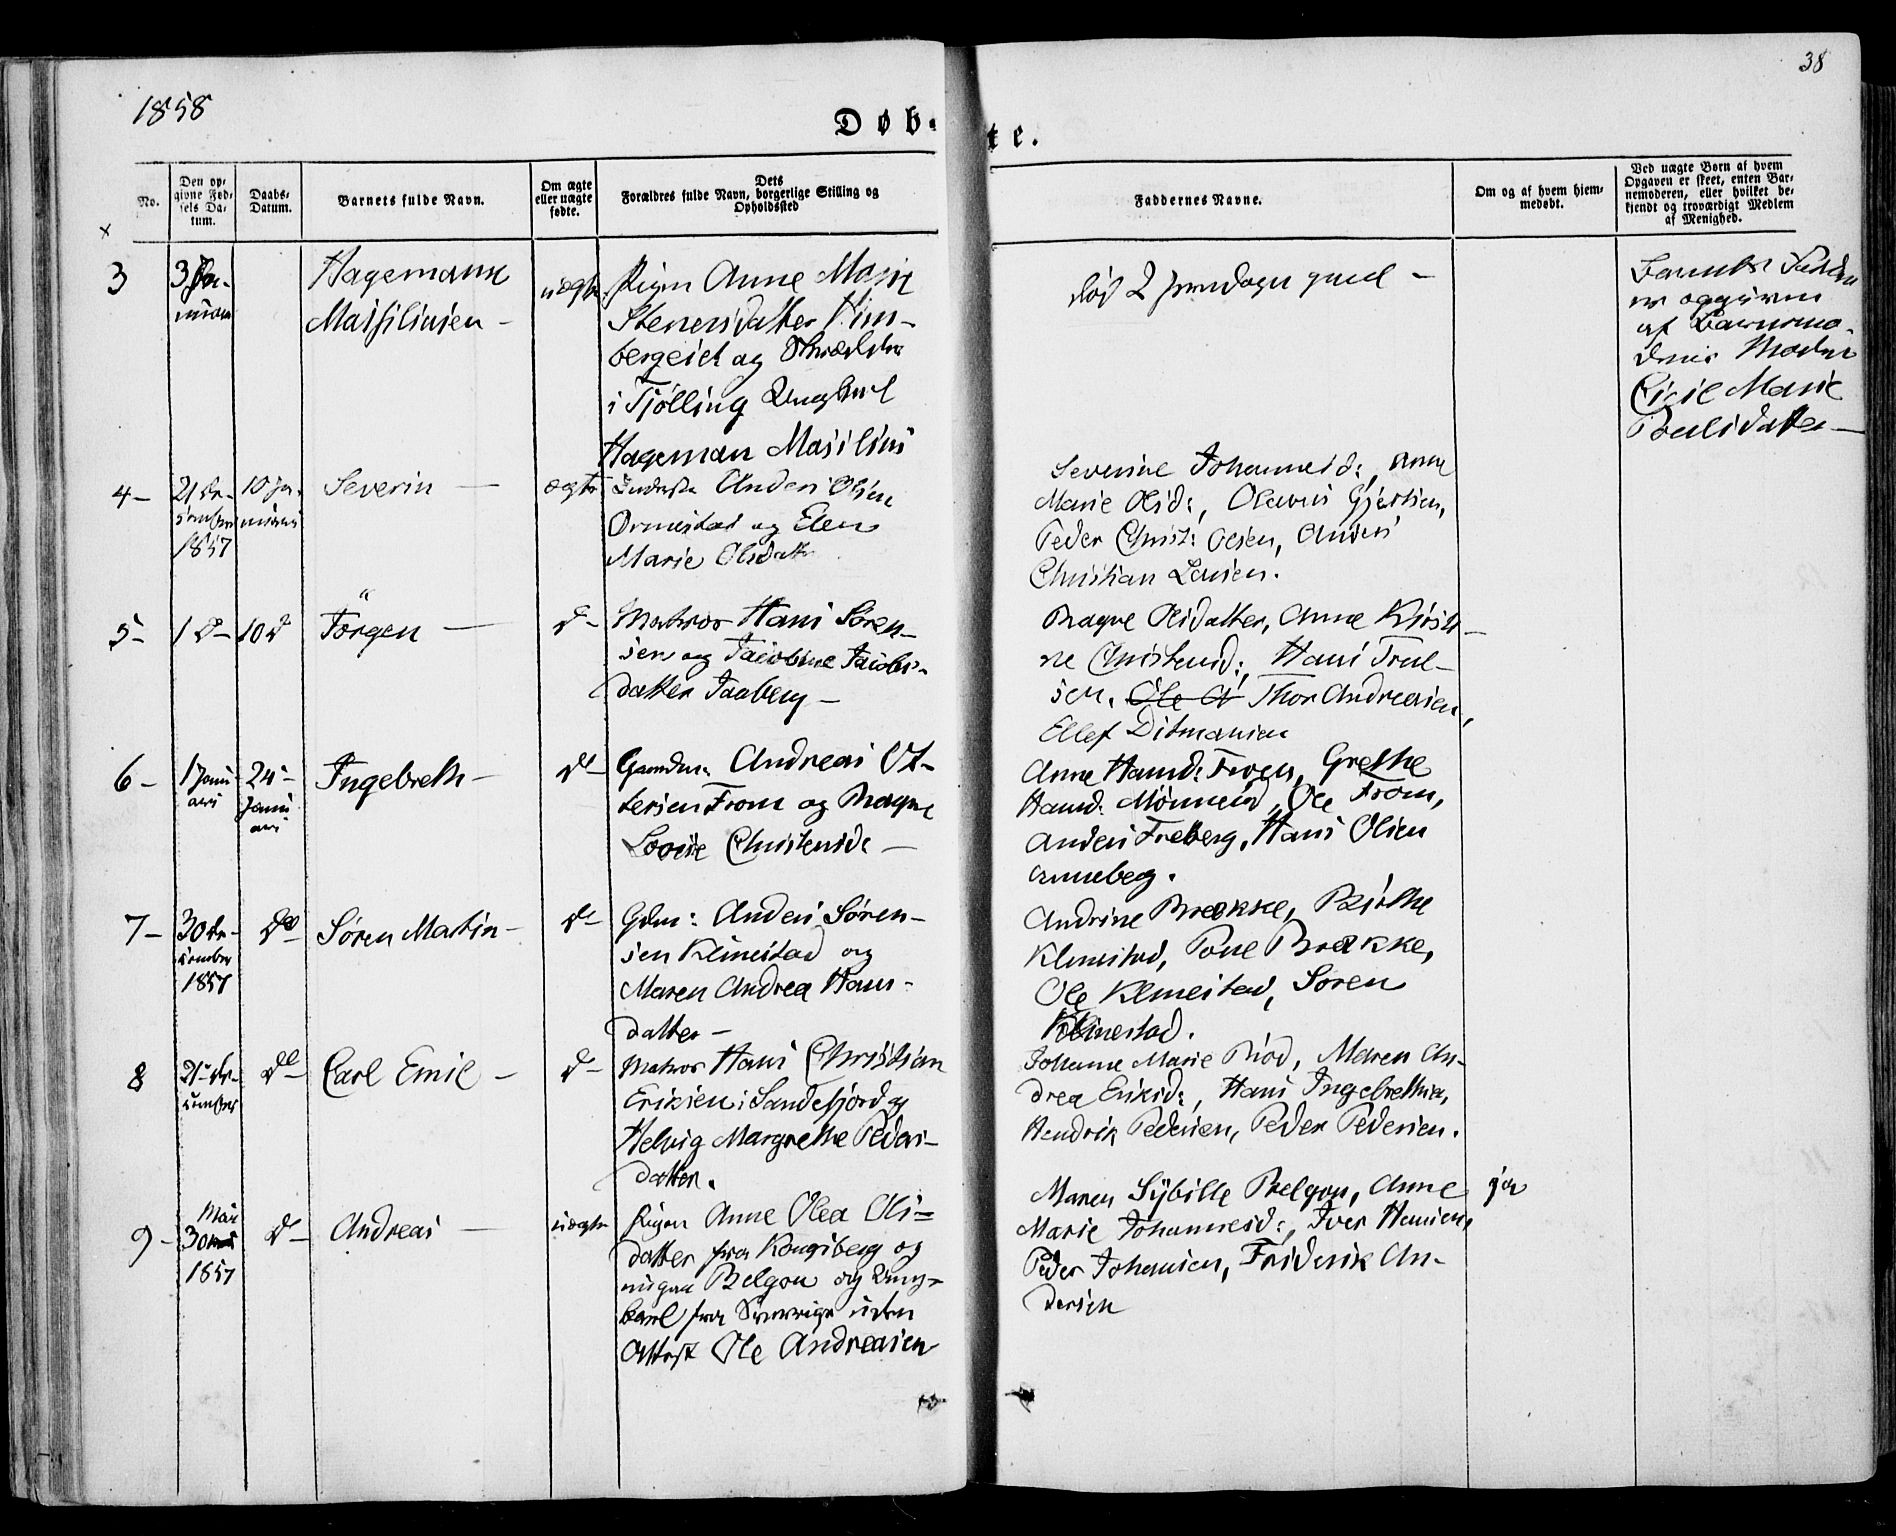 38
1858
Døb-
te.
No.
Den op-
givne Fød-
sels Da-
tum.
Daabs-
Datum.
Barnets fulde Navn.
Om ægte
eller uægte
fødte.
Dets
Forældres fulde Navn, borgerlige Stilling og
Opholdssted
Faddernes Navne.
Om og af hvem hjem-
medøbt.
Ved uægte Børn af hvem
Opgaven er skeet, enten Bar-
nemoderen, eller hvilket be-
kjendt og troværdigt Medlem
af Menighed.
3
3 Ja-
nuar
Hagemann
Massilinsen -
uægte
Pigen Anne Marie
Stenersdatter Him-
bergeiet og Skrædder
i Tjølling Ungkarl
Hageman Masilius
død 2
Barnets Fader
er opgiven
af Barnemo-
deris Moder
Cicil Marie
Poulsdatter -
4 -
21 De-
cember
1857
10 Ja-
nuari
Severin -
ægte
Anders Olsen
Ormestad og Elen
Marie Olsdatr
Severine Johannesd:, Anne
Marie Olsd:, Olavus Gjertsen,
Peder Christ: Olsen, Anders
Christian Larsen.
5 -
1 d -
10 d
Jörgen -
d -
Matros Hans Søren-
sen og Jacobine Jacobs-
datter Taaberg -
Ragne Olsdatter, Anne Kirsti-
ne Christensd:, Hans Truel-
sen, Ole A Thor Andreasen,
Ellef Ditmansen
6 -
1 Janu-
ari
24 -
Janu
ari
Ingebreth -
do -
Gaardm: Andreas Ot-
tersen From og Ragne
Lovise Christensd: -
Anne Hansd: Freen, Grethe
Hansd: , Ole From,
Anders Freberg, Hans Olsen
Anneberg.
7 -
30 De-
cember
1857
do -
Søren Martin -
do -
Gdm: Anders Søren-
sen Klinestad og
Maren Andrea Hans-
datter -
Andrine Brække, Birthe
Klinestad, Tone Brække,
Ole Klinestad, Søren
Klinestad.
8
21 - De-
cember
do -
Carl Emil -
d -
Matros Hans Christian
Eriksen i Sandefjord og
Helvig Margrethe Peders-
datter.
Johanne Marie Riød, Maren An-
drea Eriksd:, Hans Ingebrethsen,
Hendrik Pedersen, Peder Pedersen.
9 -
Mai
30
1857
d -
Andreas -
uægte
Pigen Anne Olea Ols-
datter fra Kongsberg og
nu paa Belgou og Ung-
karl fra Sverrige uden
Attest Ole Andreasen
Maren Sybille Belgou, Anne
Marie Johannesd:, Iver Hansen,
Peder Johansen, Friderik An-
dersen
ja